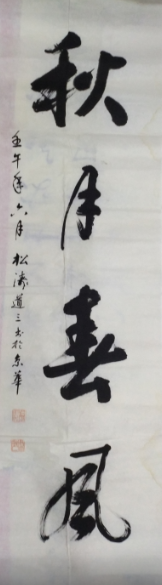 秋月春風
壬午年六月 松濤道三书於京華